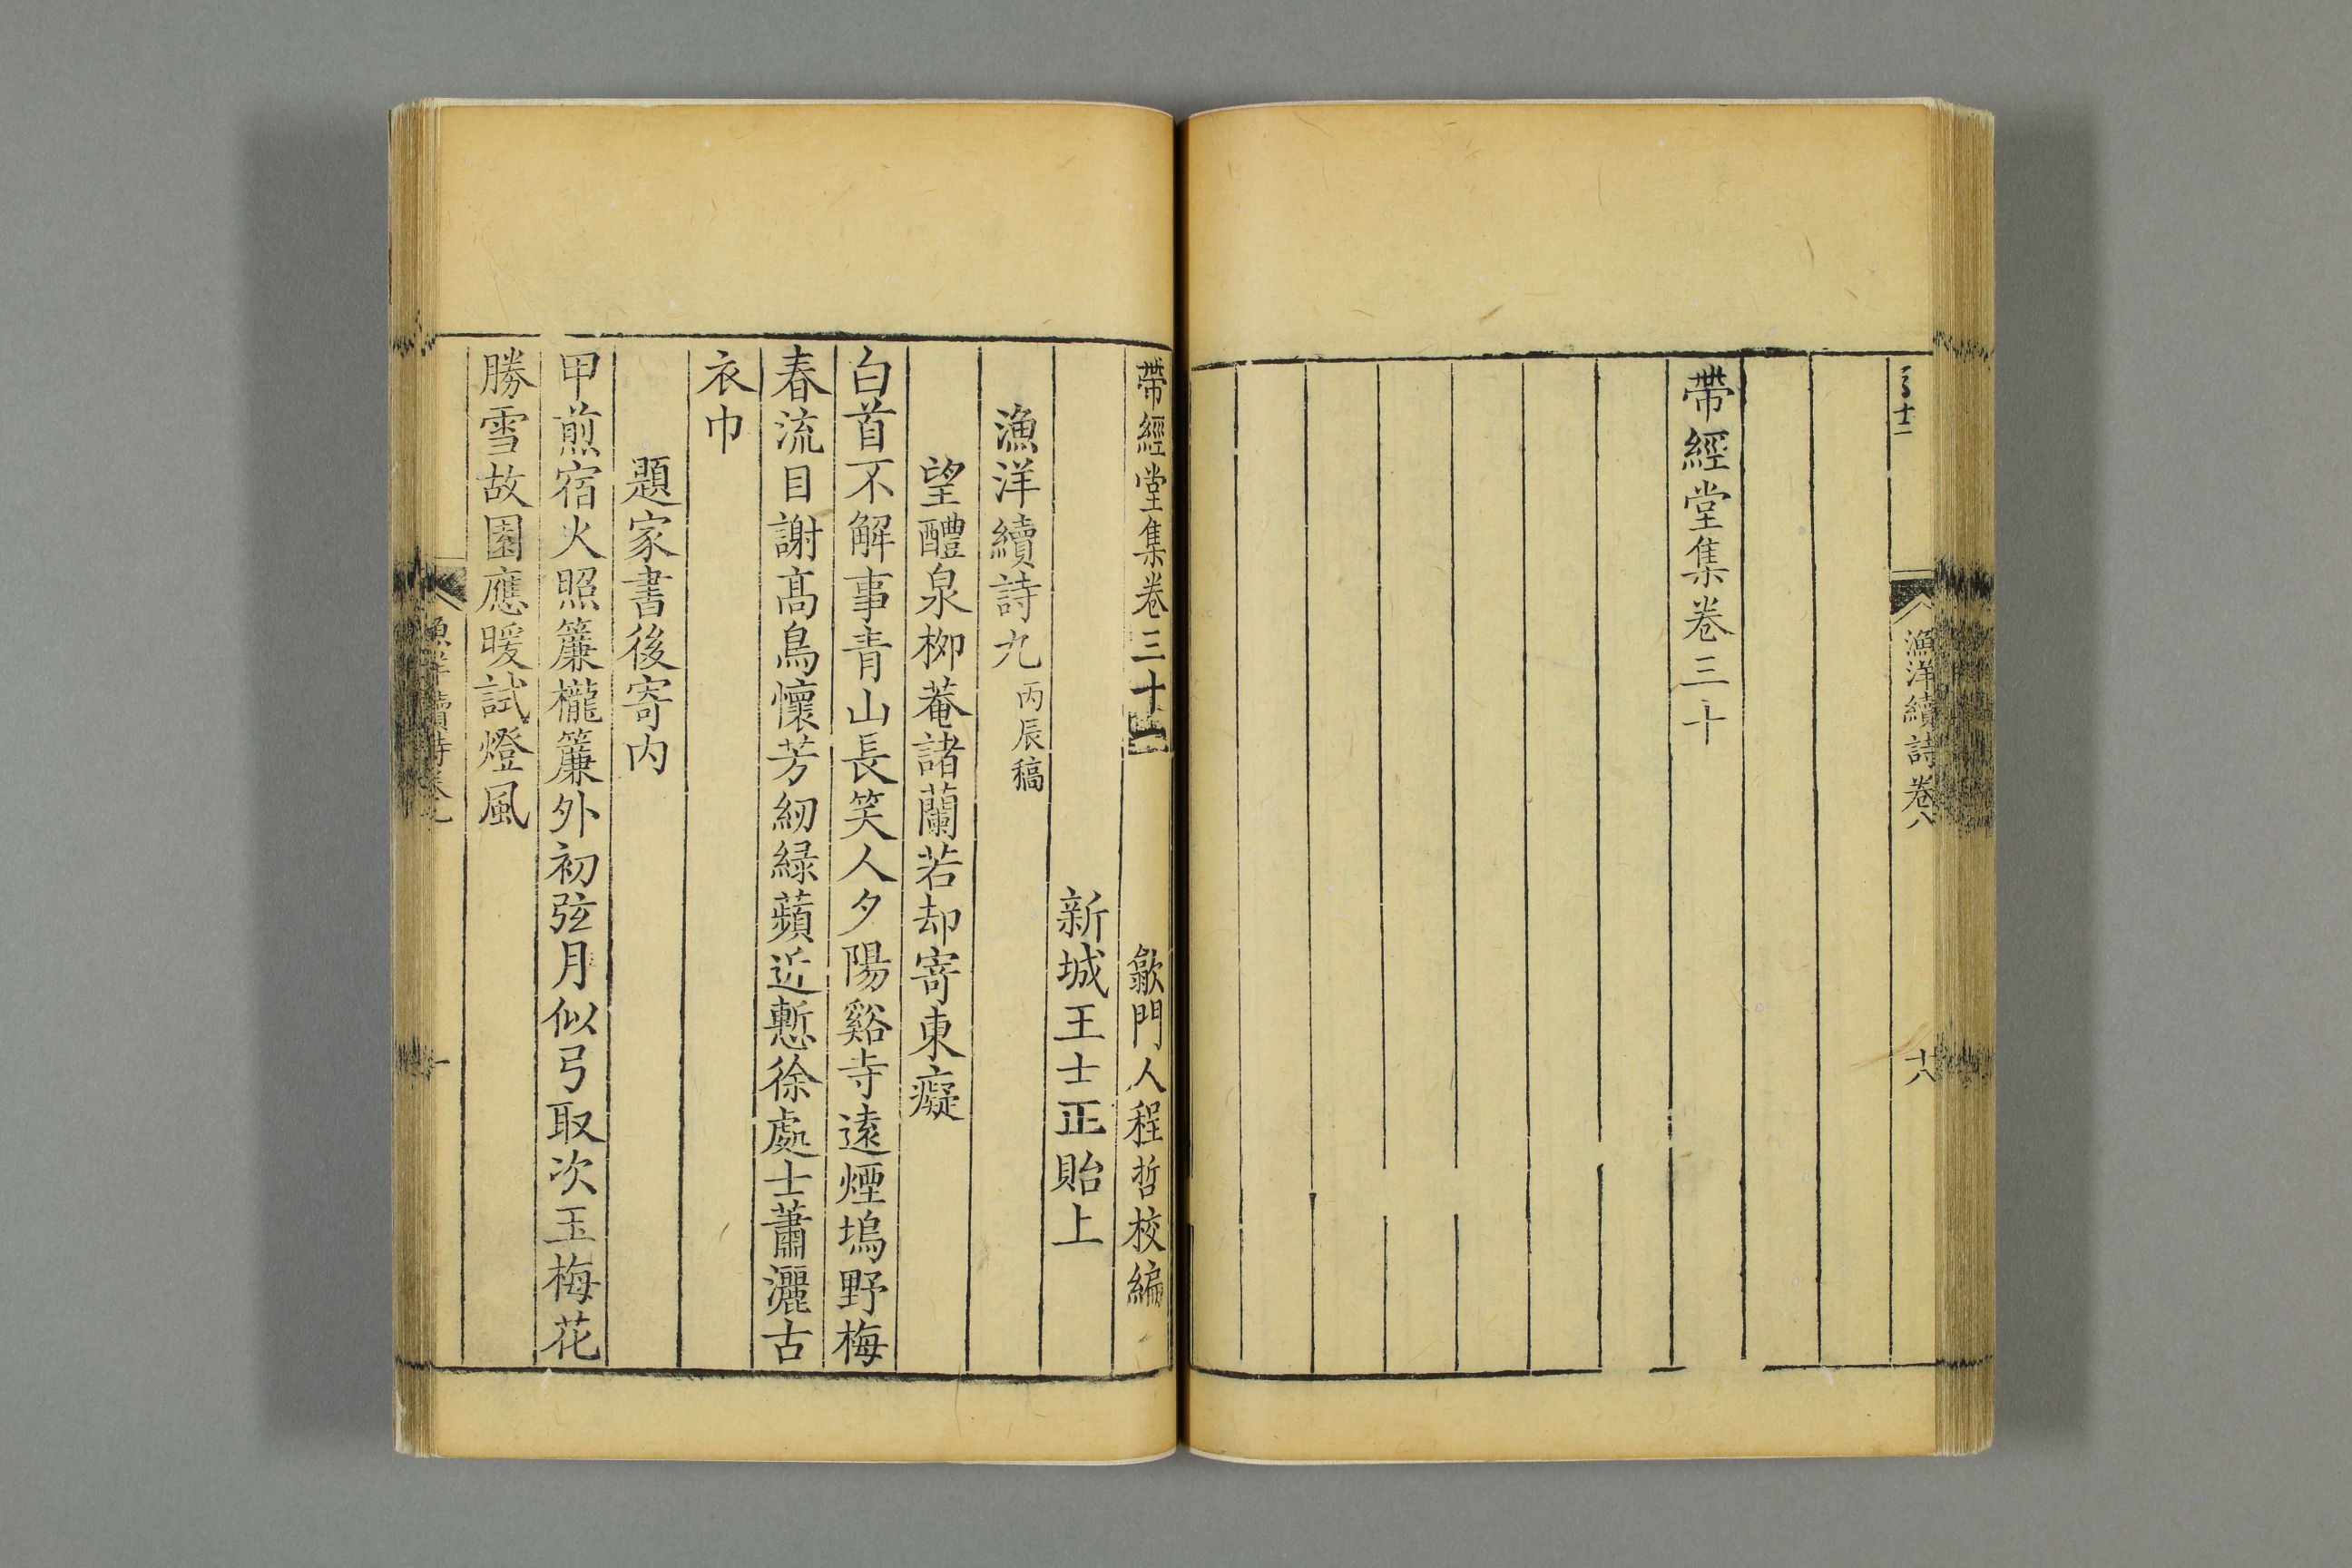 漁洋續詩卷八
十八
帶經堂集卷三十
帶經堂集卷三十一
歙門人程哲校編
新城王士正貽上
漁洋續詩九 丙辰稿
望醴泉栁菴諸蘭若却寄東癡
白首不解事青山長笑人夕陽谿寺遠煙塢野梅
春流目謝髙鳥懷芳紉緑蘋近慙徐處士蕭灑古
衣巾
題家書後寄内
甲煎宿火照簾櫳簾外初弦月似弓取次玉梅花
勝雪故園應暖試燈風
漁洋續詩卷九
一